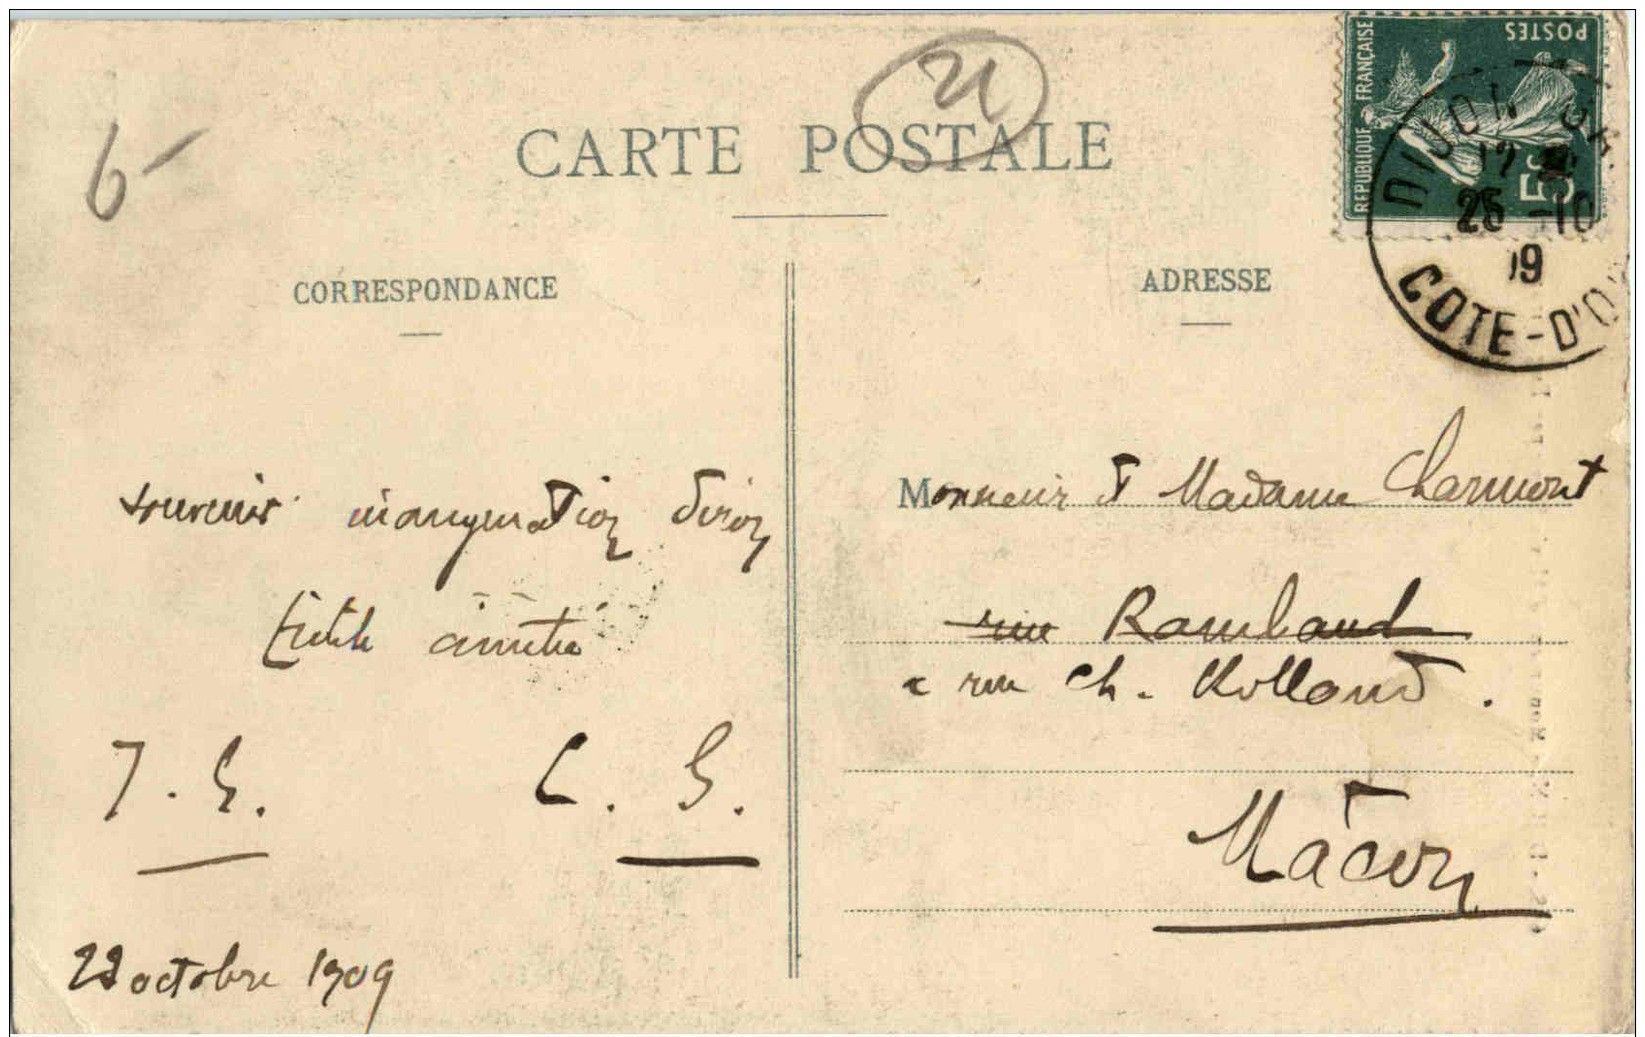 21
6-
CARTE POSTALE
POSTES
REPUBLIQUE FRANÇAISE
5c
DIJON
12
25 -10
09
COTE-D'O
CORRESPONDANCE
souvenir inauguration Dijon
amitié
J. G. C. G.
octobre 1909
ADRESSE
Monsieur & Madame Charmont
rue Rambaud
rue Ch. Rolland.
Mâcon